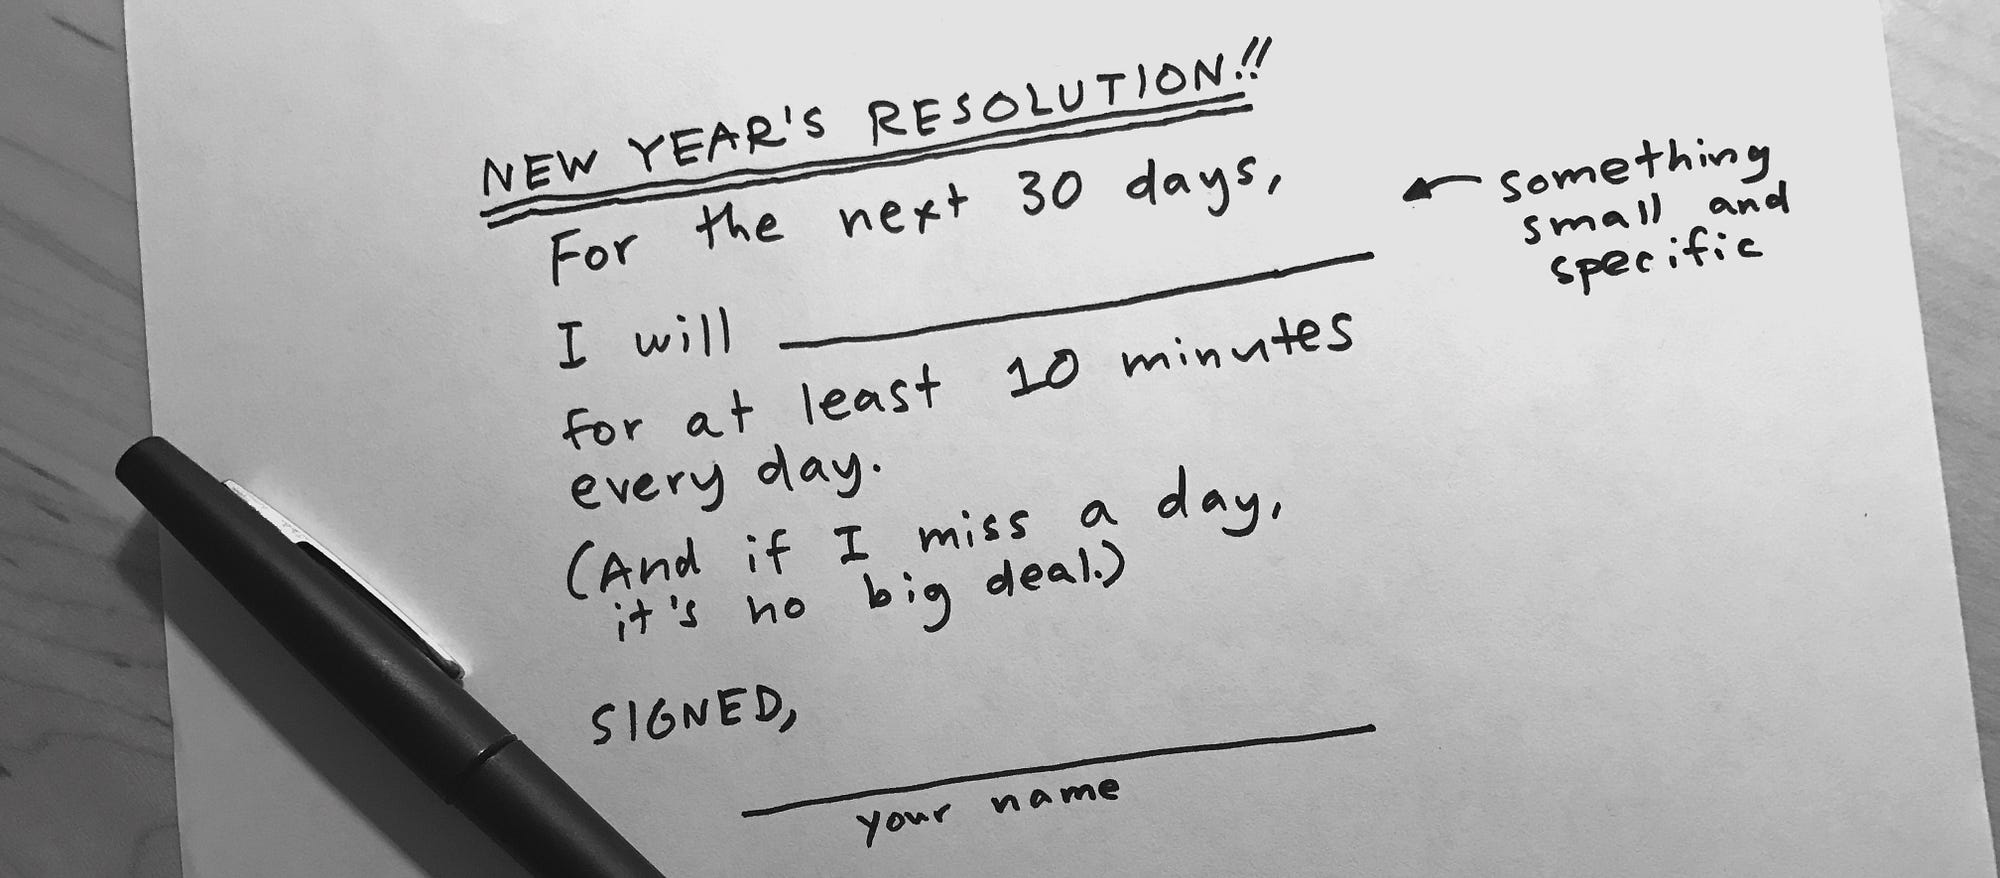 NEW YEAR'S RESOLUTION!!
For the next 30 days,
something
small and
specific
I will
for at least 10 minutes
every day.
(And if I miss a day,
it's no big deal.)
SIGNED,
your name